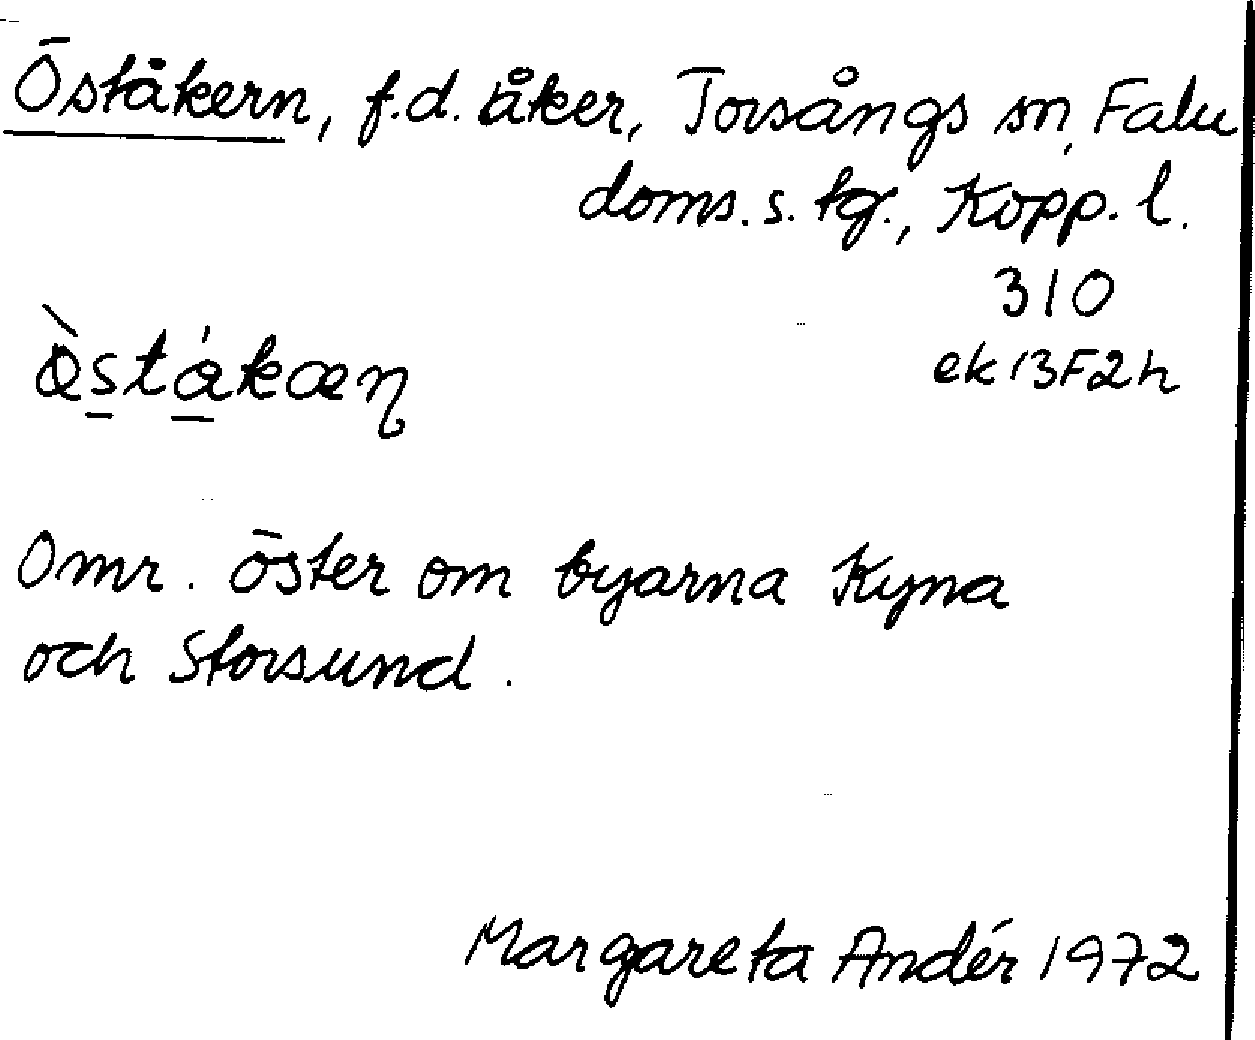 Öståkern, f.d. åker, Torsångs sn, Falu
doms. s. tg., Kopp. l.
310
ek 13F2h
Omr. öster om byarna Kyna
och Storsund.
Margareta Andér 1972